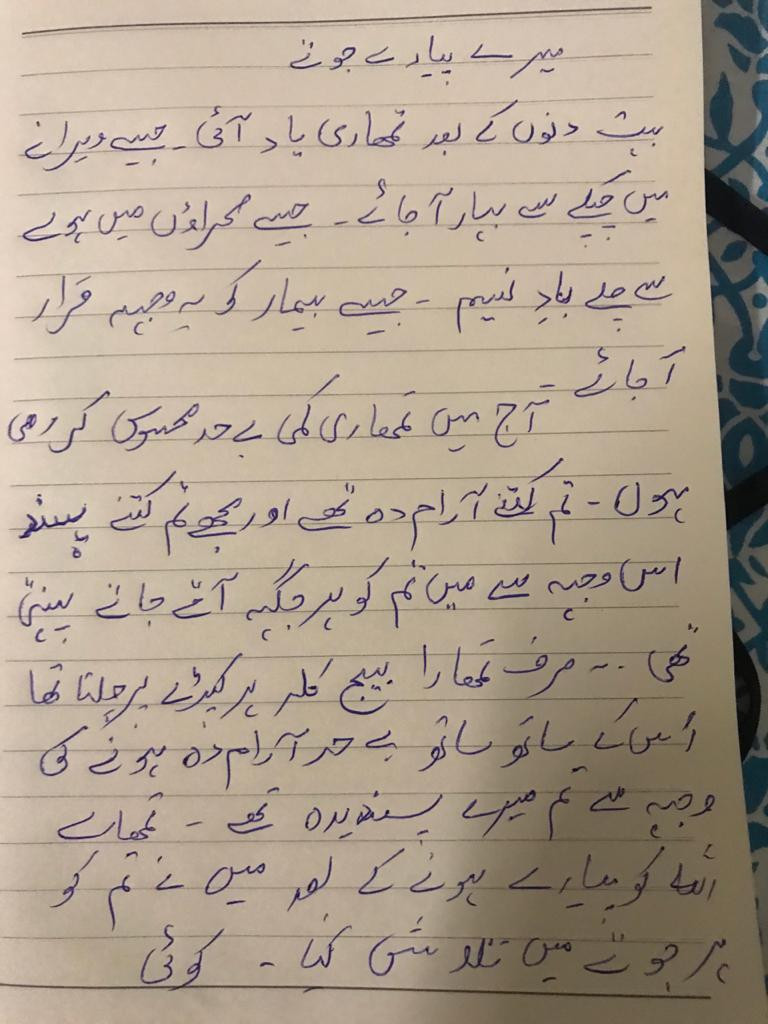 میرے پیارے جوتے
بہت دنوں کے بعد تمھاری یاد آئی ۔ جیسے ویرانے
میں چپکے سے بہار آ جائے ۔ جیسے صحراؤں میں ہولے
سے چلے بادِ نسیم ۔ جیسے بیمار کو بے وجہ قرار
آ جائے ۔
آج میں تمھاری کمی بے حد محسوس کر رہی
ہوں ۔ تم کتنے آرام دہ تھے اور مجھے تم کتنے پسند
اس وجہ سے میں تم کو ہر جگہ آتے جاتے پہنتی
تھی ۔۔ صرف تمھارا بیج کلر ہر کپڑے پر چلتا تھا
اُس کے ساتھ ساتھ بے حد آرام دہ ہونے کی
وجہ سے تم میرے پسندیدہ تھے ۔ تمھارے
اللہ کو پیارے ہونے کے بعد میں نے تم کو
ہر جوتے میں تلاش کیا ۔ کوئی